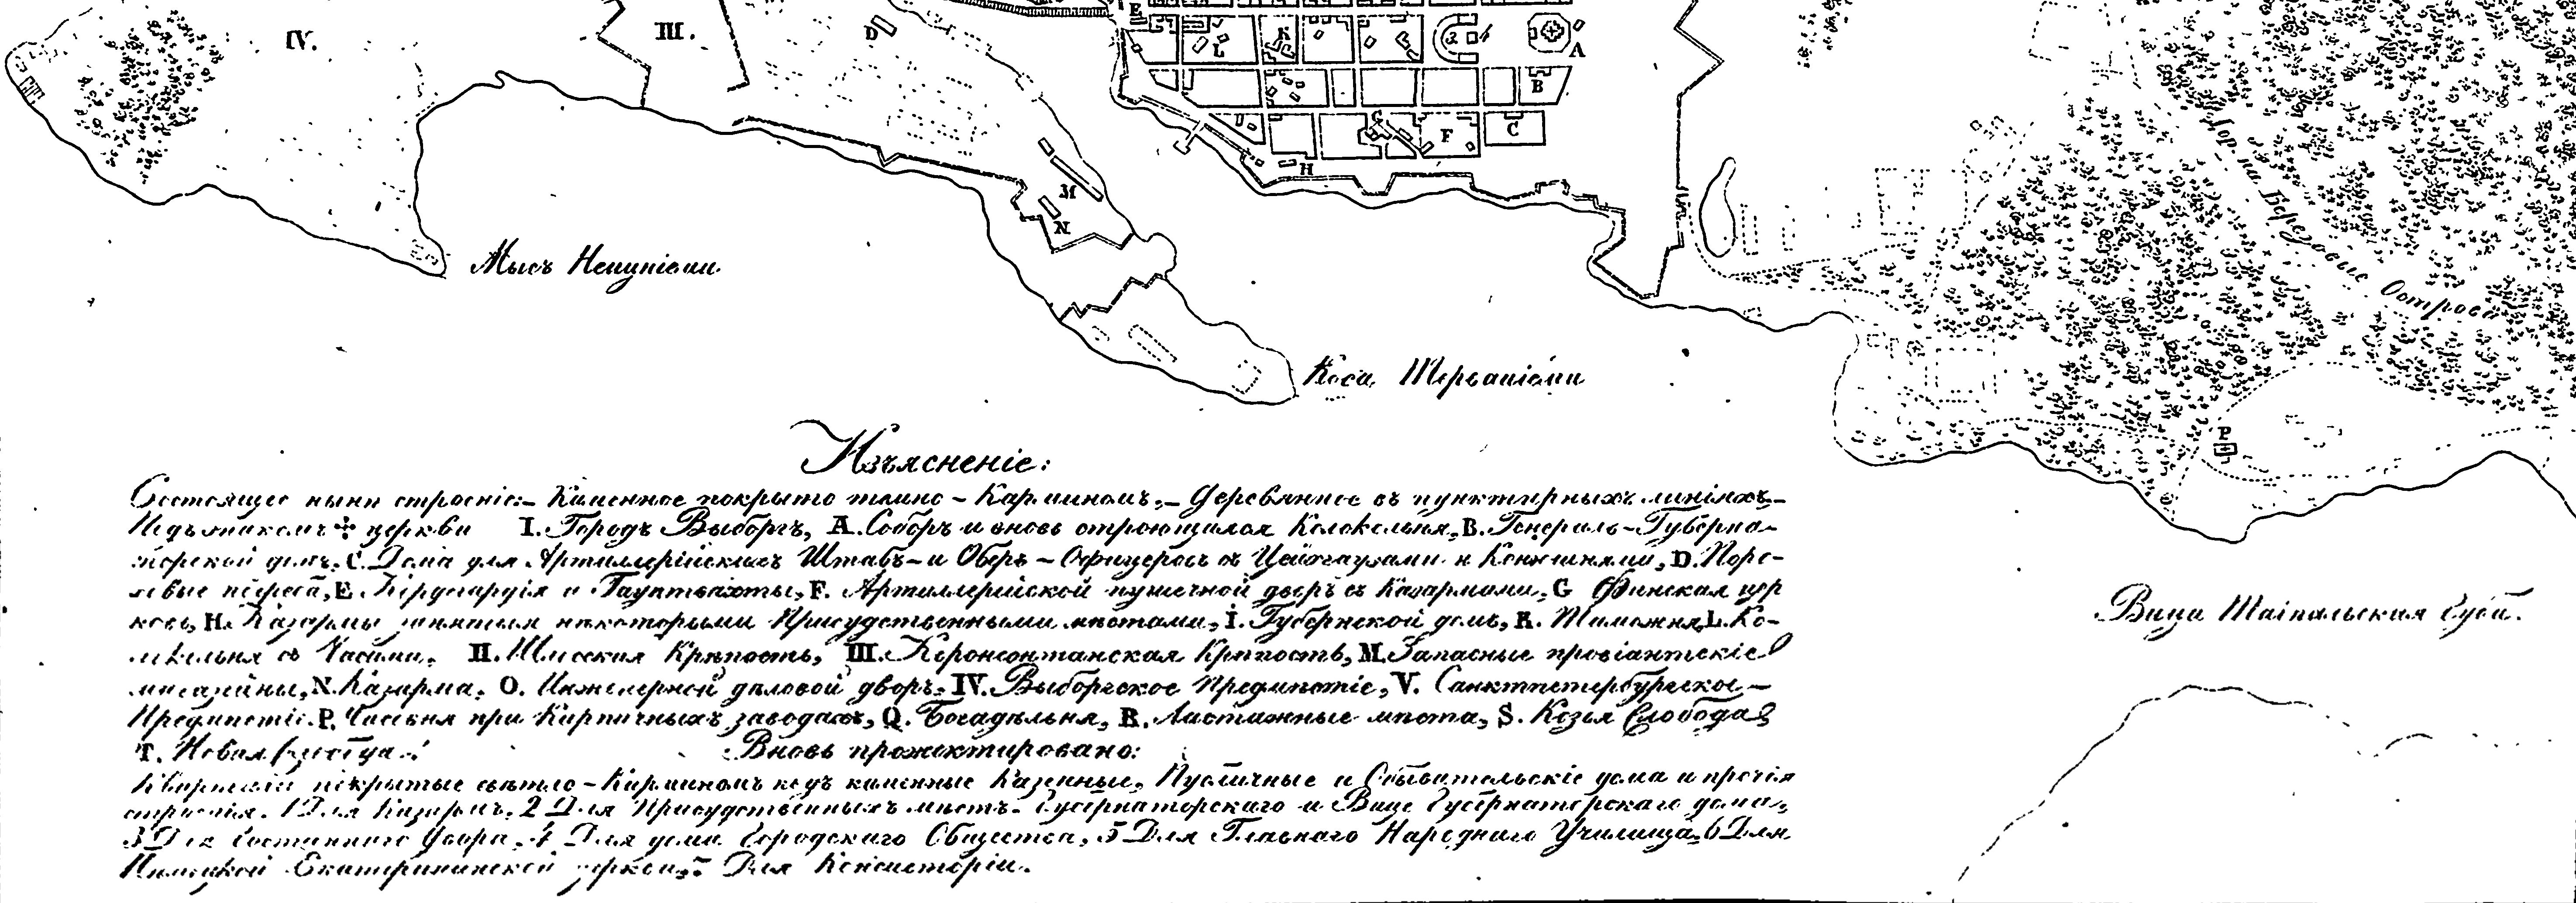 IV.
III.
D
E
L
K
2
4
A
B
C
G
F
H
M
N
P
Гор. на Березовые Острова
Мысъ Нейуніеми
Коса Терваніеми
Изъясненіе:
Состоящее нынѣ строеніе:– Каменное покрыто темно – Карминомъ,– Деревянное въ пунктирныхъ линіяхъ–
Подъ знакомъ ✢ церкви I. Городъ Выборгъ, A. Соборъ и вновь строющаяся Колокольня, B. Генералъ–Губерна–
торской домъ. C. Дома для Артиллерійскихъ Штабъ– и Оберъ – Офицеровъ съ Цейхгаузами и Конюшнями, D. Поро–
ховые погреба, E. Кордегардія и Гауптвахты, F. Артиллерійской пушечной дворъ съ Казармами. G Финская цер
ковь, H. Казармы занятыя некоторыми Присудственными мѣстами, I. Губернской домъ, K. Таможня L. Ко–
локольня съ Часами. II. Шлосская Крѣпость, III. Кроноснтанская Крѣпость, M. Запасные провіантскіе
магазейны, N. Казарма. O. Инженерной дѣловой дворъ. IV. Выборгское Предмѣстіе, V. Санктпетербургское –
Предмѣстіе. P. Часовня при Кирпичныхъ заводахъ, Q. Богадѣльня, R. Ластажные мѣста, S. Козья Слобода
T. Новая Слобода.
Вновь прожектировано:
Кварталы покрытые свѣтло – Карминомъ подъ каменные Казенные, Публичные и Обывательскіе дома и прочія
строенія. 1 Для Казармъ. 2 Для Присудственныхъ мѣстъ. Губернаторскаго и Вице Губернаторскаго дома,
3 Для Гостиннаго Двора. 4 Для дома Городскаго Общества, 5 Для Главнаго Народнаго Училища. 6 Для
Нѣмецкой Екатерининской церкви, 7 Для Консисторіи.
губы.